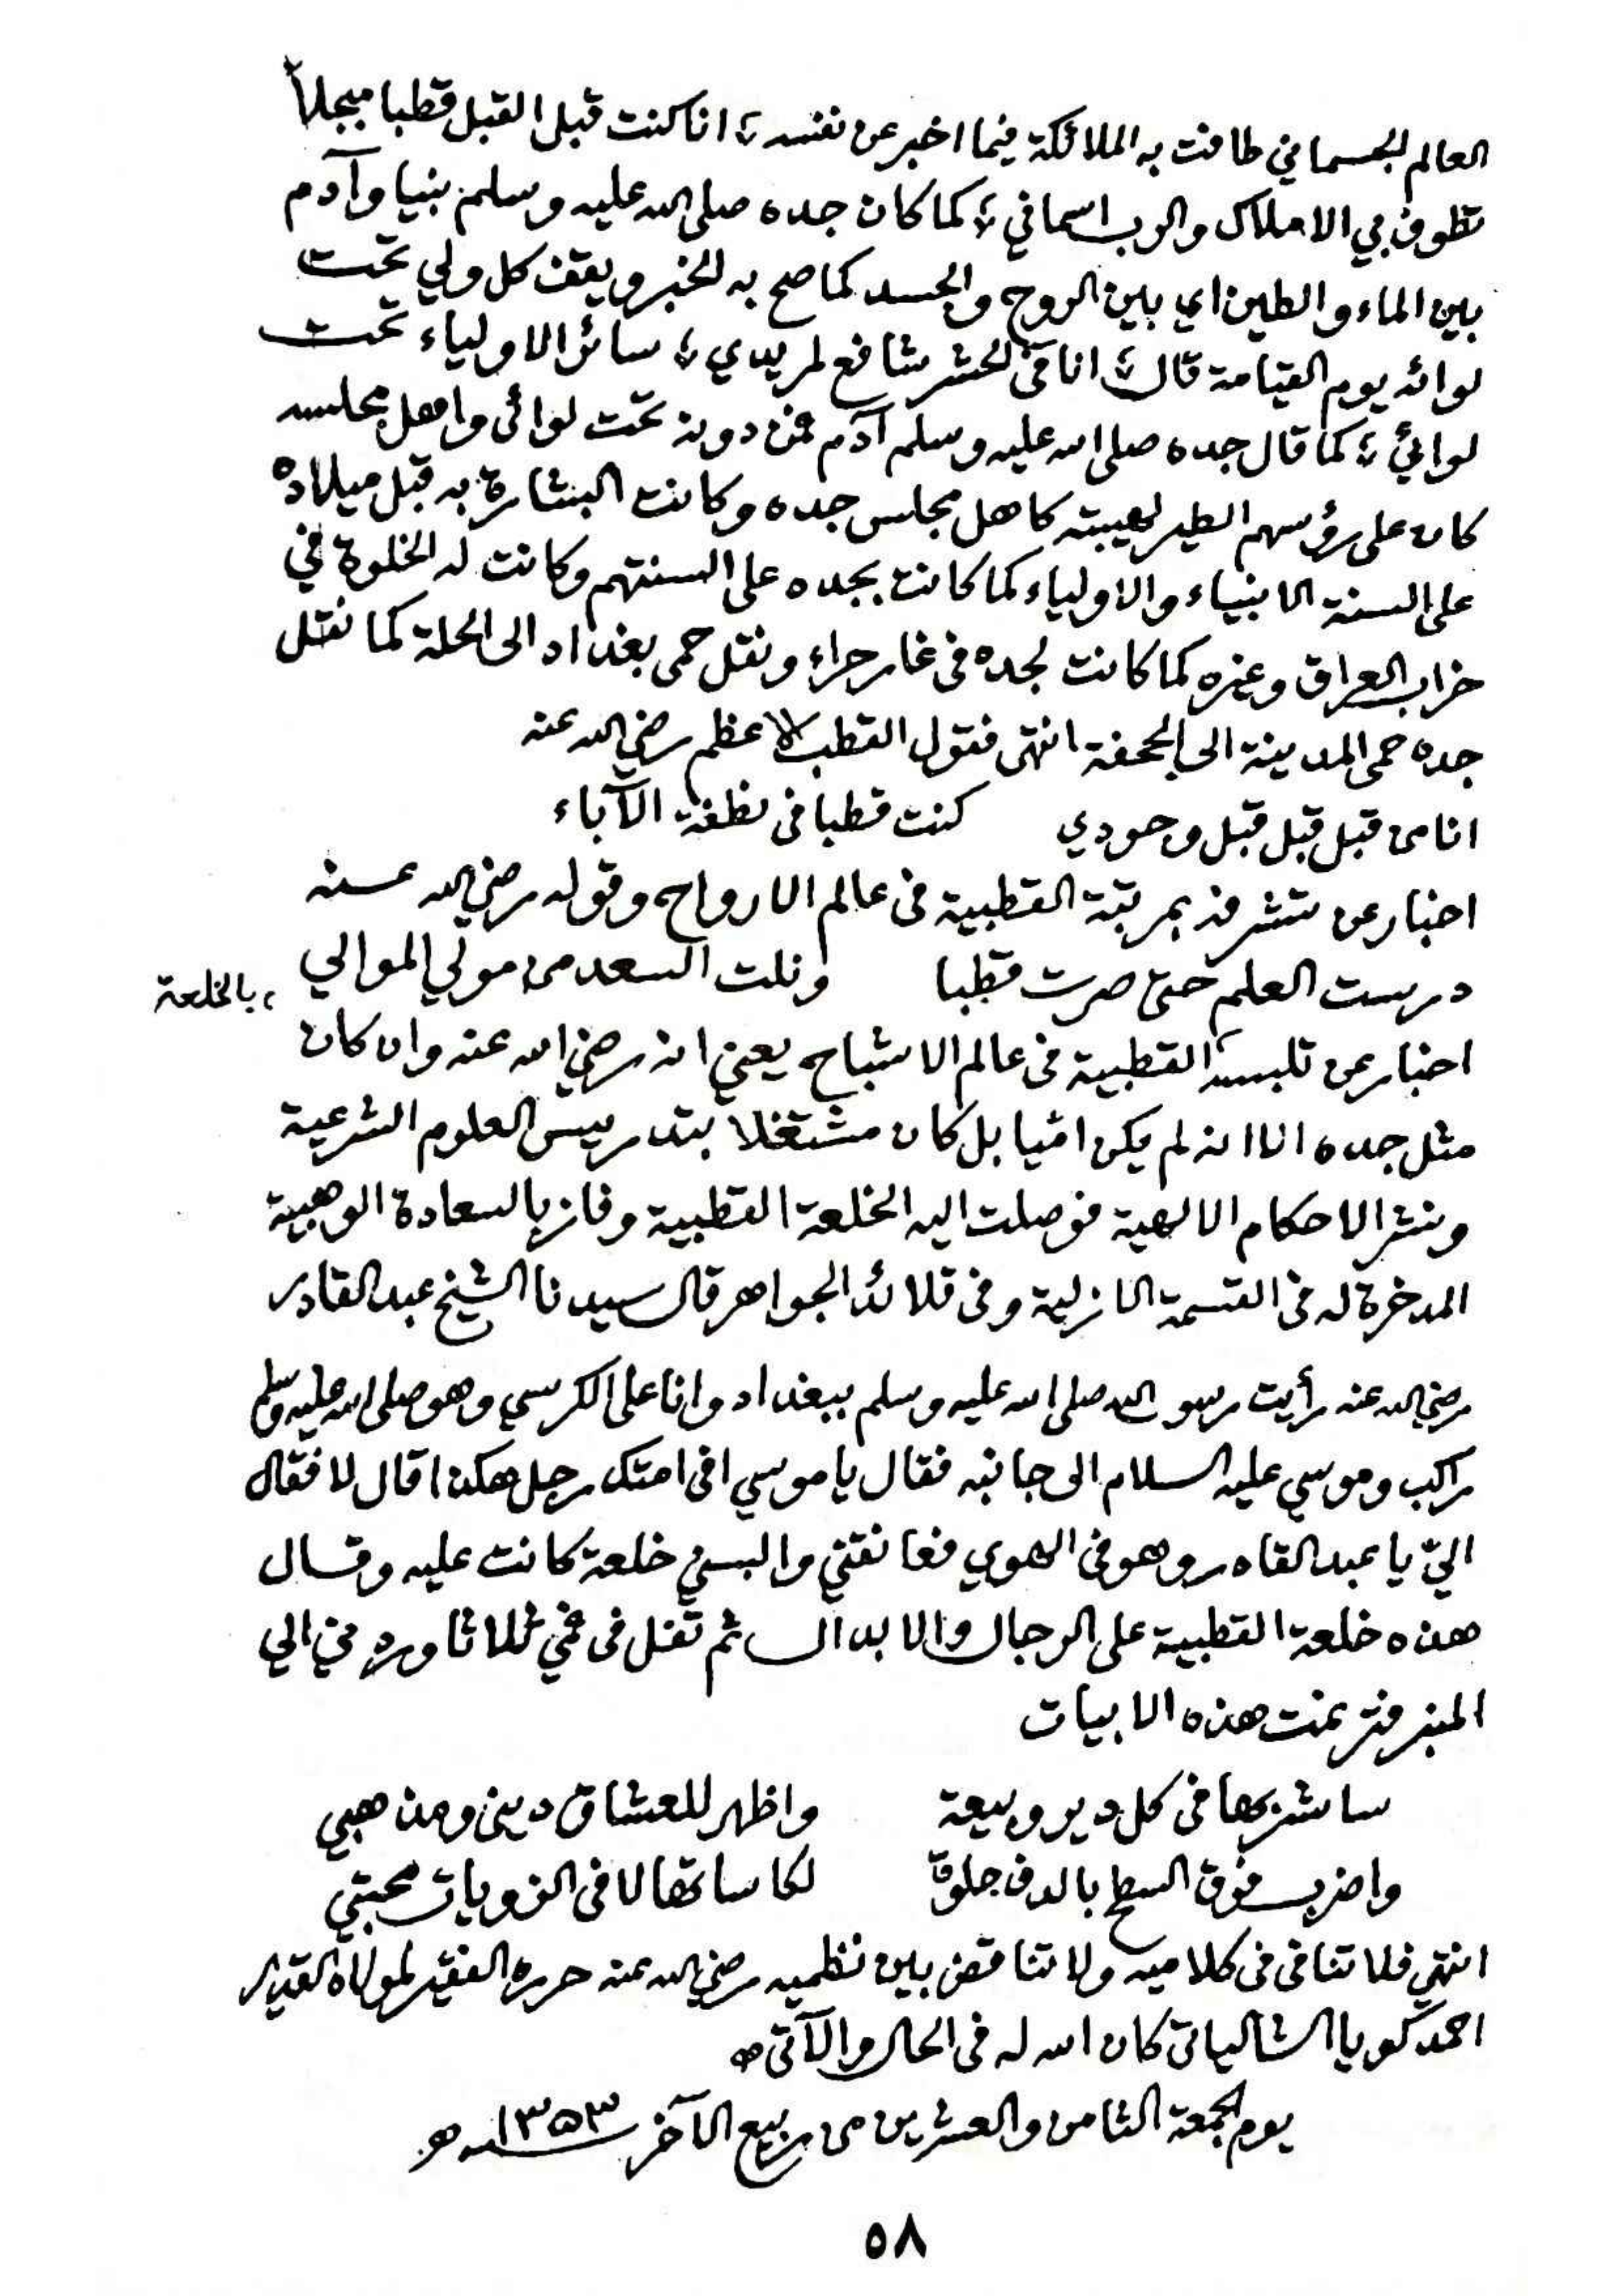 العالم الجسماني طافت به الملائكة فيما اخبر عن نفسه ؛ انا كنت قبل القبل قطبا مبجلاً
تطوف بي الاملاك والرب اسماني ؛ كما كان جده صلى الله عليه وسلم نبيا وآدم
بين الماء والطين اي بين الروح والجسد كما صح به الخبر ويقف كل ولي تحت
لوائه يوم القيامة قال ؛ انا في الحشر شافع لمريدي ؛ سائر الاولياء تحت
لوائي ؛ كما قال جده صلى الله عليه وسلم آدم فمن دونه تحت لوائي واهل مجلسه
كان على رؤسهم الطير لهيبته كاهل مجلس جده وكانت البشارة به قبل ميلاده
على السنة الانبياء والاولياء كما كانت بجده على السنتهم وكانت له الخلوة في
خراب العراق وغيره كما كانت لجده في غار حراء ونقل حمى بغداد الى الحلة كما نقل
جده حمى المدينة الى الجحفة انتهى فقول القطب الاعظم رضي الله عنه
انا من قبل قبل قبل وجودي كنت قطبا في نطفة الآباء
اخبار عن تشرفه بمرتبة القطبية في عالم الارواح وقوله رضي الله عنه
درست العلم حتى صرت قطبا ونلت السعد من مولي الموالي
اخبار عن تلبسه القطبية في عالم الاشباح يعني انه رضي الله عنه وان كان
، بالخلعة
مثل جده الا انه لم يكن اميا بل كان مشتغلا بتدريس العلوم الشرعية
ونشر الاحكام الالهية فوصلت اليه الخلعة القطبية وفاز بالسعادة الوهبية
المدخرة له في القسمة الازلية وفي قلائد الجواهر قال سيدنا الشيخ عبد القادر
رضي الله عنه رأيت رسول الله صلى الله عليه وسلم ببغداد وانا على الكرسي وهو صلى الله عليه وسلم
راكب وموسى عليه السلام الى جانبه فقال يا موسي افي امتك رجل هكذا قال لا فقال
اليّ يا عبد القادر وهو في الهوي فعانقني والبسني خلعة كانت عليه وقال
هذه خلعة القطبية على الرجال والابدال ثم تفل في فمي ثلاثا وردني الي
المنبر فترنمت هذه الابيات
ساشربها في كل دير وبيعة واظهر للعشاق ديني ومذهبي
واضرب فوق السطح بالدف جلوة لكاساتها لا في الزويات محبتي
انتهي فلا تنافي في كلاميه ولا تناقض بين نظميه رضي الله عنه حرره الفقير لمولاه القدير
احمد كويا الشالياتي كان الله له في الحال والآتي
يوم الجمعة الثامن والعشرين من ربيع الآخر سنة ١٣٥٣ هـ
٥٨